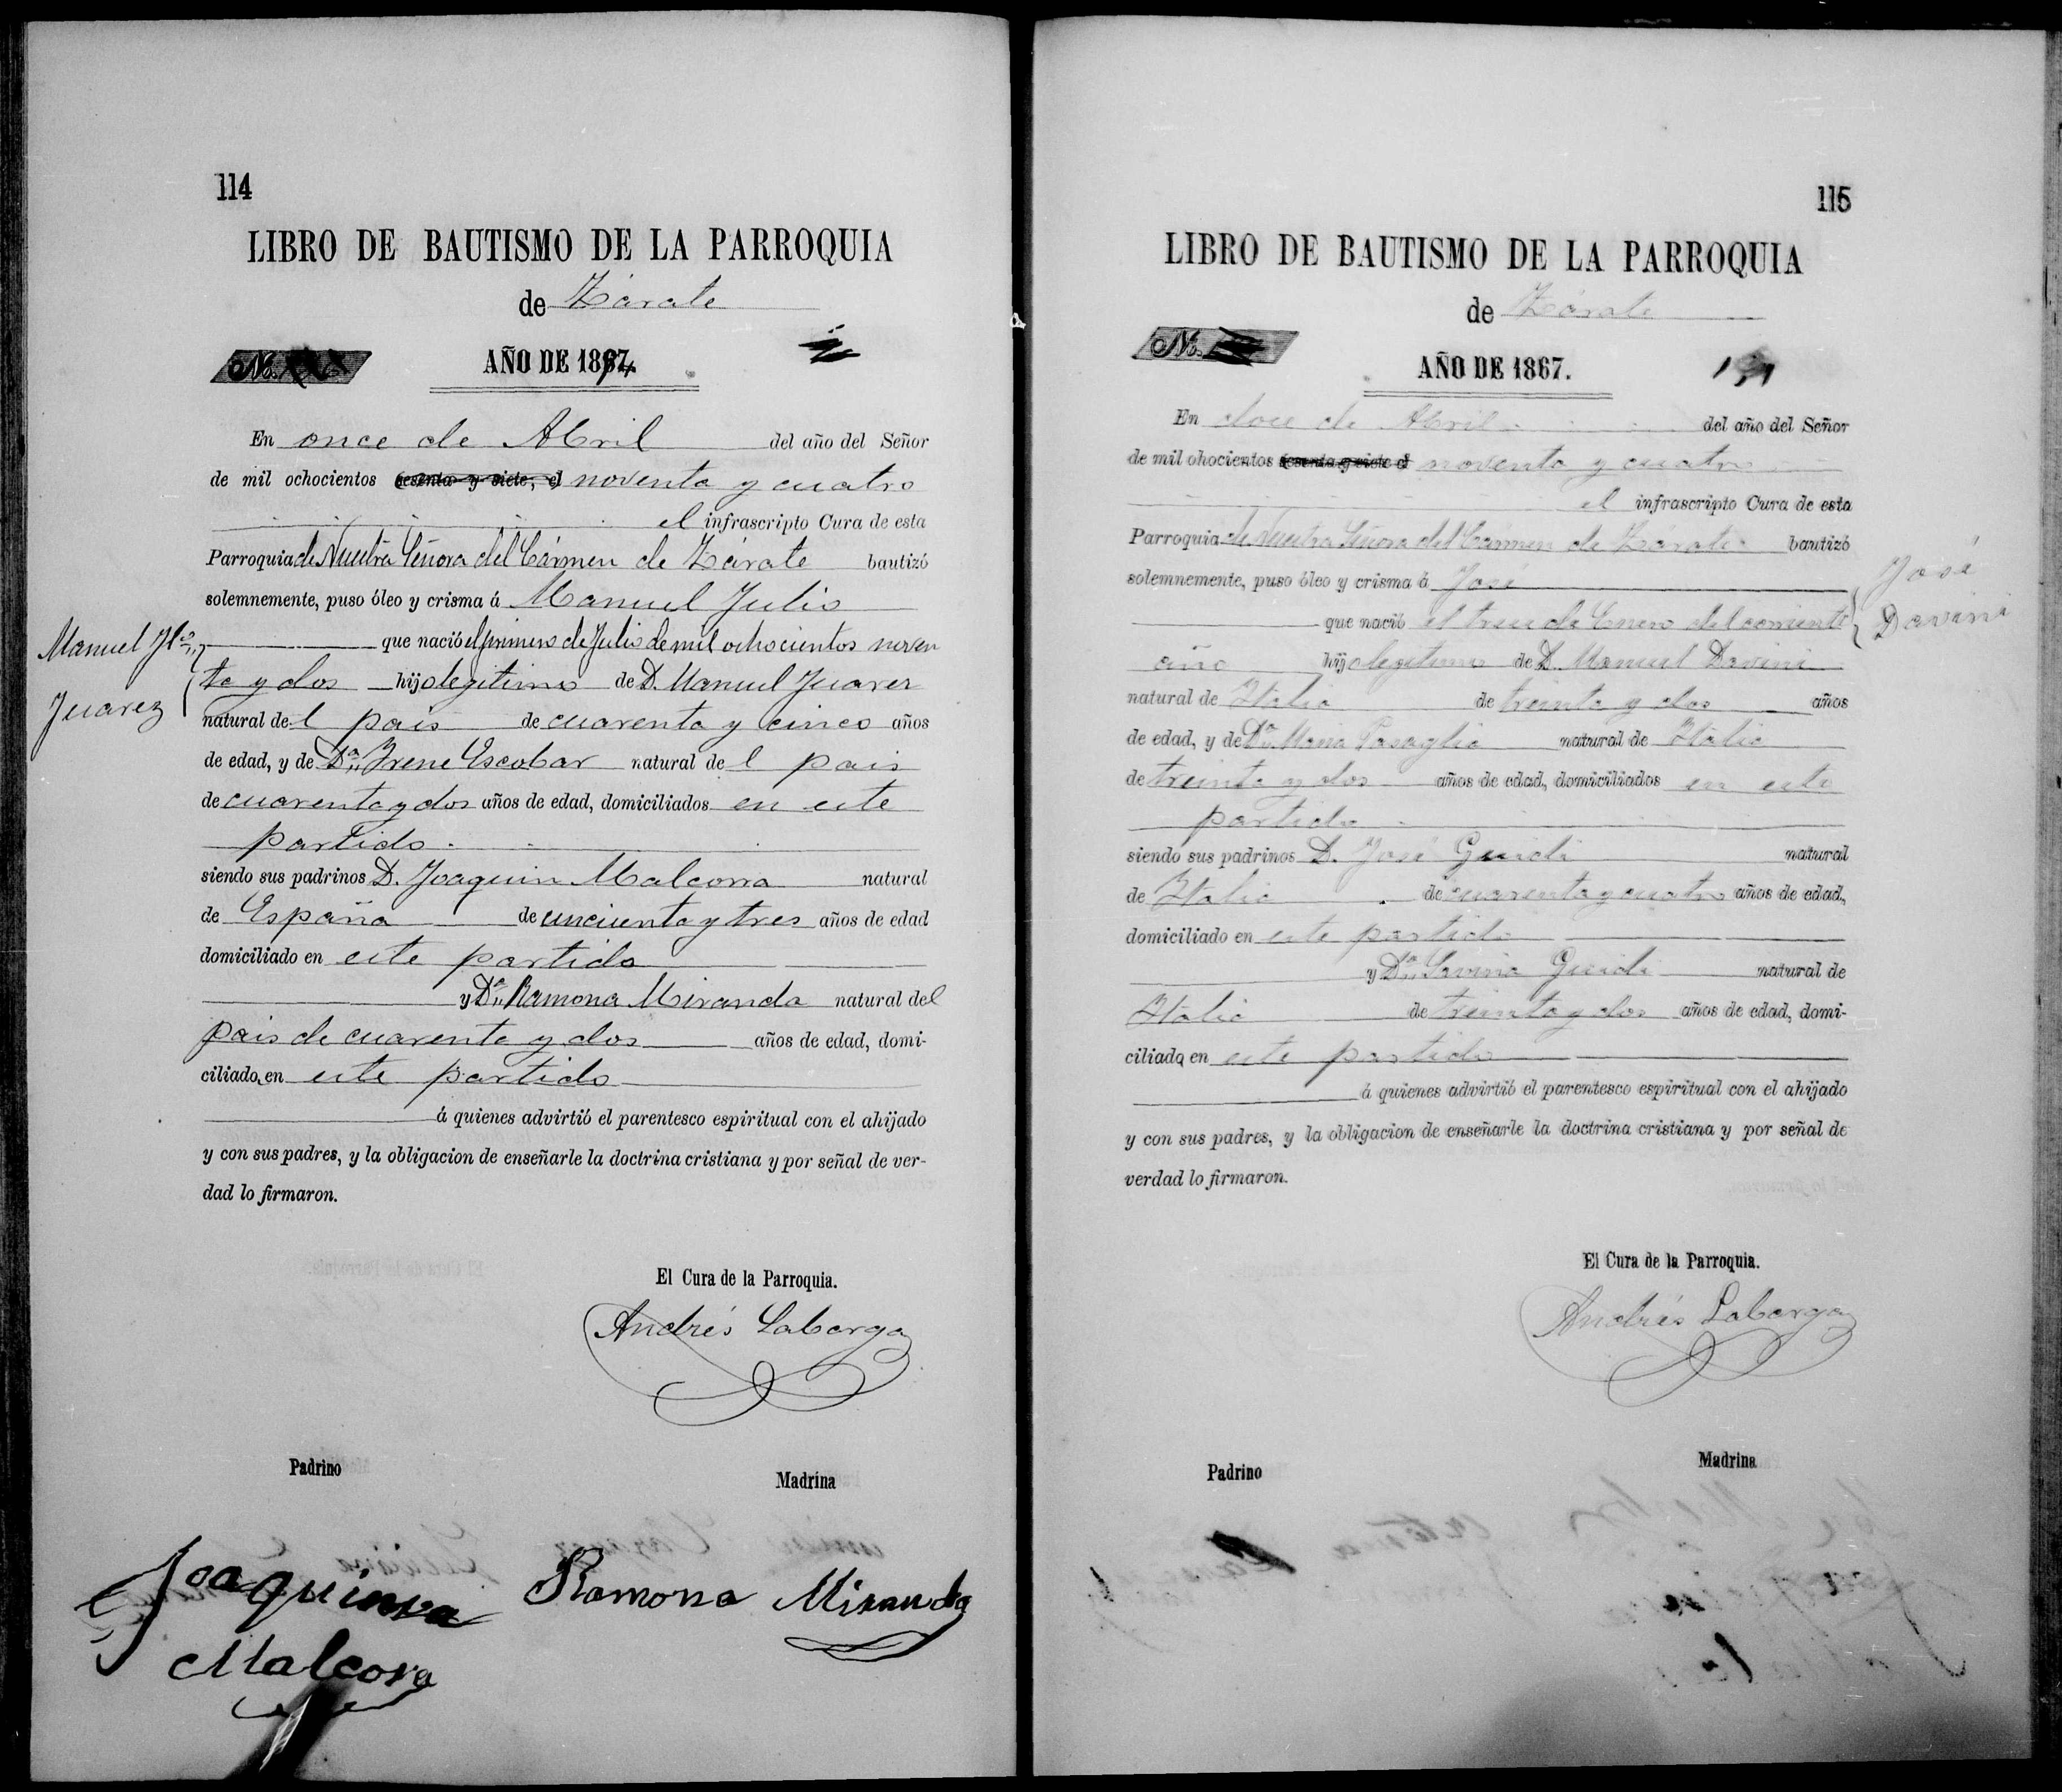 114
LIBRO DE BAUTISMO DE LA PARROQUIA
de Zárate
No.
AÑO DE 1894.
En once de Abril del año del Señor
de mil ochocientos sesenta y siete, el noventa y cuatro
el infrascripto Cura de esta
Parroquia de Nuestra Señora del Cármen de Zárate bautizó
solemnemente, puso óleo y crisma á Manuel Julio
que nació el primero de Julio de mil ochocientos noven
ta y dos hijo legitimo de D. Manuel Juarez
natural del pais de cuarenta y cinco años
de edad, y de Da. Irene Escobar natural del pais
de cuarenta y dos años de edad, domiciliados en este
partido.
siendo sus padrinos D. Joaquin Malcorra natural
de España de cincuenta y tres años de edad
domiciliado en este partido
y Da. Ramona Miranda natural del
pais de cuarenta y dos años de edad, domi-
ciliado, en este partido
á quienes advirtió el parentesco espiritual con el ahijado
y con sus padres, y la obligacion de enseñarle la doctrina cristiana y por señal de ver-
dad lo firmaron.
Manuel Jlo.
Juarez
El Cura de la Parroquia.
Andrés Laborga
Padrino
Madrina
Joaquin
Malcora
Ramona Miranda
115
LIBRO DE BAUTISMO DE LA PARROQUIA
de Zárate
No.
AÑO DE 1867.
En doce de Abril del año del Señor
de mil ohocientos sesenta y siete el noventa y cuatro
el infrascripto Cura de esta
Parroquia de Nuestra Señora del Cármen de Zárate bautizó
solemnemente, puso óleo y crisma á José
que nació el trece de Enero del corriente
año hijo legitimo de D. Manuel Davini
natural de Italia de treinta y dos años
de edad, y de Da. Maria natural de Italia
de treinta y dos años de edad, domiciliados en este
partido.
siendo sus padrinos D. José Guidi natural
de Italia de cuarenta y cuatro años de edad,
domiciliado en este partido
y Da. Savina Guidi natural de
Italia de treinta y dos años de edad, domi-
ciliada en este partido
á quienes advirtió el parentesco espiritual con el ahijado
y con sus padres, y la obligacion de enseñarle la doctrina cristiana y por señal de
verdad lo firmaron.
José
Davini
El Cura de la Parroquia.
Andrés Laborga
Padrino
Madrina